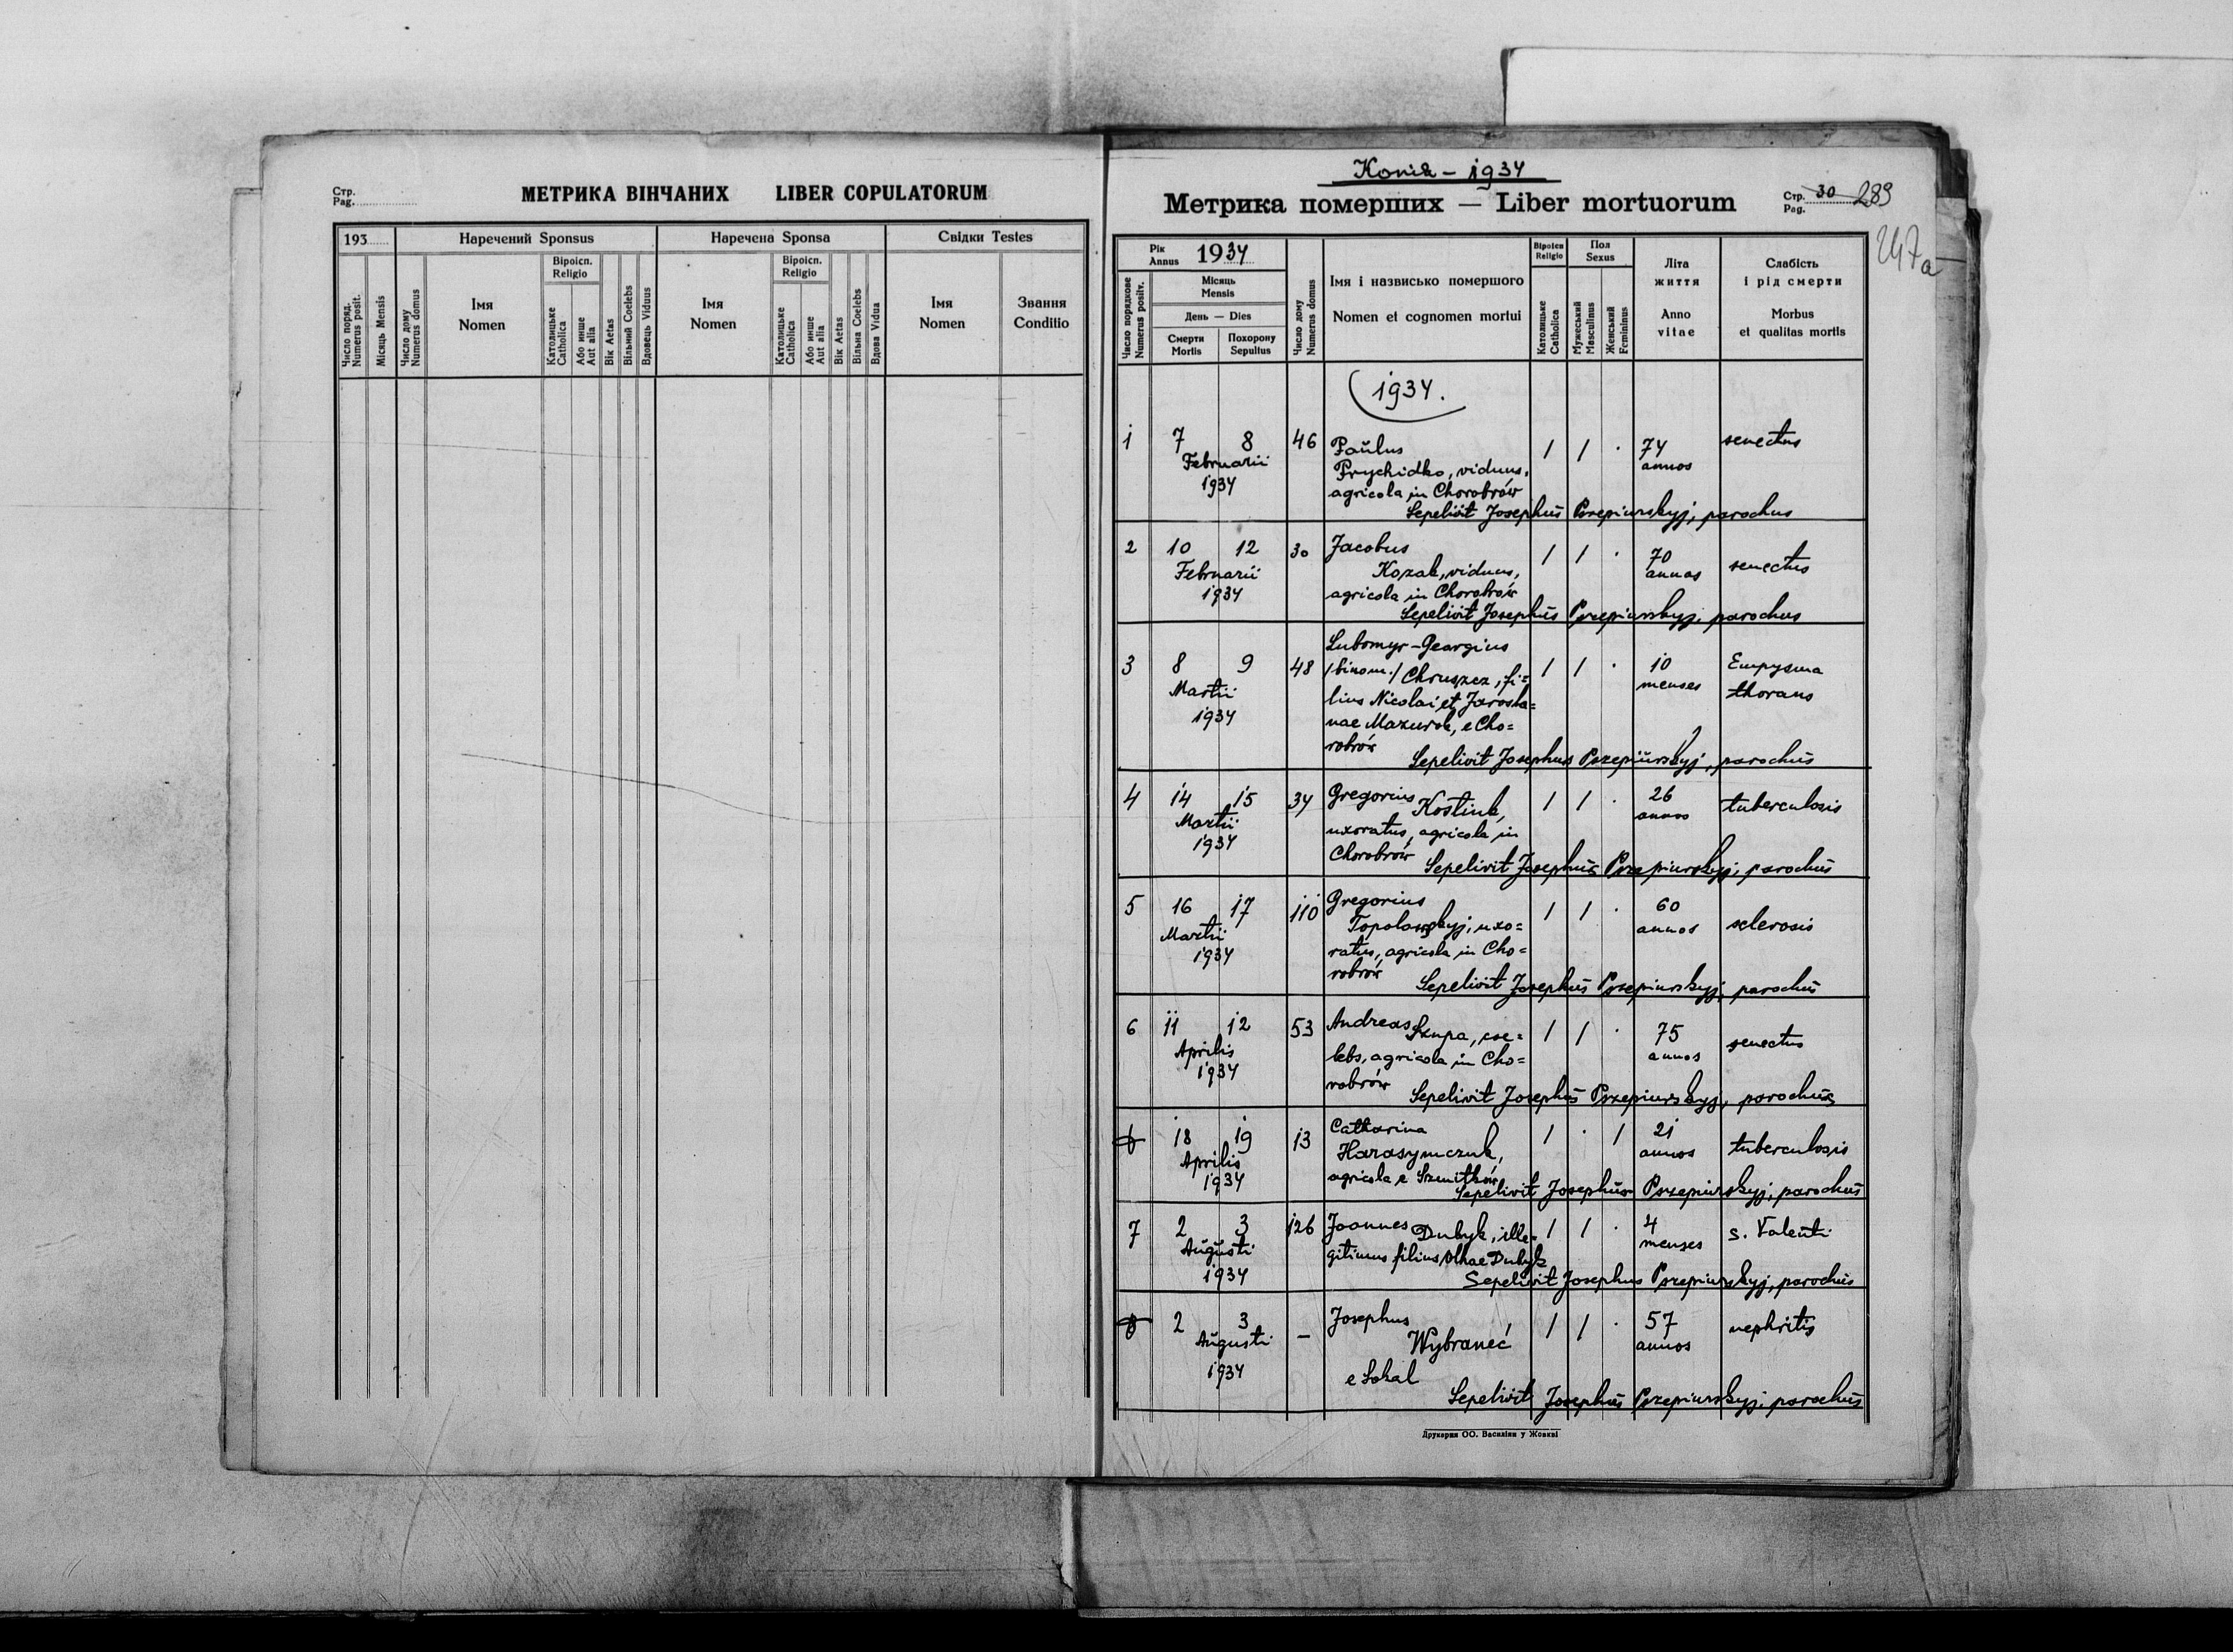 Стр.
Pag.
МЕТРИКА ВІНЧАНИХ LIBER COPULATORUM
193
Наречений Sponsus
Наречена Sponsa
Свідки Testes
Число поряд.
Numerus posit.
Місяць Mensis
Число дому
Numerus domus
Імя
Nomen
Віроісп.
Religio
Католицьке
Catholica
Або инше
Aut alia
Вік Aetas
Вільний Coelebs
Вдовець Viduus
Імя
Nomen
Віроісп.
Religio
Католицьке
Catholica
Або инше
Aut alia
Вік Aetas
Вільна Coelebs
Вдова Vidua
Імя
Nomen
Звання
Conditio
Копія - 1934
Метрика померших — Liber mortuorum
Стр.
Pag.
30 289
247a
Рік
Annus 1934
Число порядкове
Numerus positv.
Місяць
Mensis
День — Dies
Смерти
Mortis
Похорону
Sepultus
Число дому
Numerus domus
Імя і назвисько помершого
Nomen et cognomen mortui
Віроісп
Religio
Католицьке
Catholica
Пол
Sexus
Мужеський
Masculinus
Женський
Femininus
Літа
життя
Anno
vitae
Слабість
і рід смерти
Morbus
et qualitas mortis
1934.
1 7 8 46 Paŭlus / / · 74 senectus
Februarii Prychidko, viduus, annos
1934 agricola in Chorobrów
Sepelivit Josephŭs Przepiurskyj, parochus
2 10 12 30 Jacobus / / · 70 senectus
Februarii Kozak, viduus, annos
1934 agricola in Chorobrów
Sepelivit Josephŭs Przepiurskyj, parochus
Lubomyr-Georgius
3 8 9 48 /binom./ Chruszcz, fi= / / · 10 Empysma
Martii lius Nicolai et Jarosła= menses thoraus
1934 nae Mazurok, e Cho=
robrów
Sepelivit Josephus Przepiŭrskyj, parochŭs
4 14 15 34 Gregorius Kostiuk, / / · 26 tuberculosis
Martii uxoratus, agricola in annos
1934 Chorobrów
Sepelivit Josephŭs Przepiurskyj, parochŭs
5 16 17 110 Gregorius / / · 60 sclerosis
Martii Topolowskyj, uxo= annos
1934 ratus, agricola in Cho=
robrów
Sepelivit Josephŭs Przepiurskyj, parochŭs
6 11 12 53 Andreas Szupa, cae= / / · 75 senectus
Aprilis lebs, agricola in Cho= annos
1934 robrów
Sepelivit Josephŭs Przepiurskyj, parochŭs
18 19 13 Catharina / · / 21 tuberculosis
Aprilis Harasymczuk, annos
1934 agricola e Szmitków
Sepelivit Josephŭs Przepiurskyj, parochŭs
7 2 3 126 Joannes Dubyk, ille= / / · 4 s. Valenti
Aŭgŭsti gitimus filius Olhae Dubyk menses
1934
Sepelivit Josephus Przepiurskyj, parochŭs
2 3 — Josephus / / · 57 nephritis
Aŭgusti Wybraneć annos
1934 e Sokal
Sepelivit Josephŭs Przepiurskyj, parochŭs
Друкарня ОО. Василіян у Жовкві